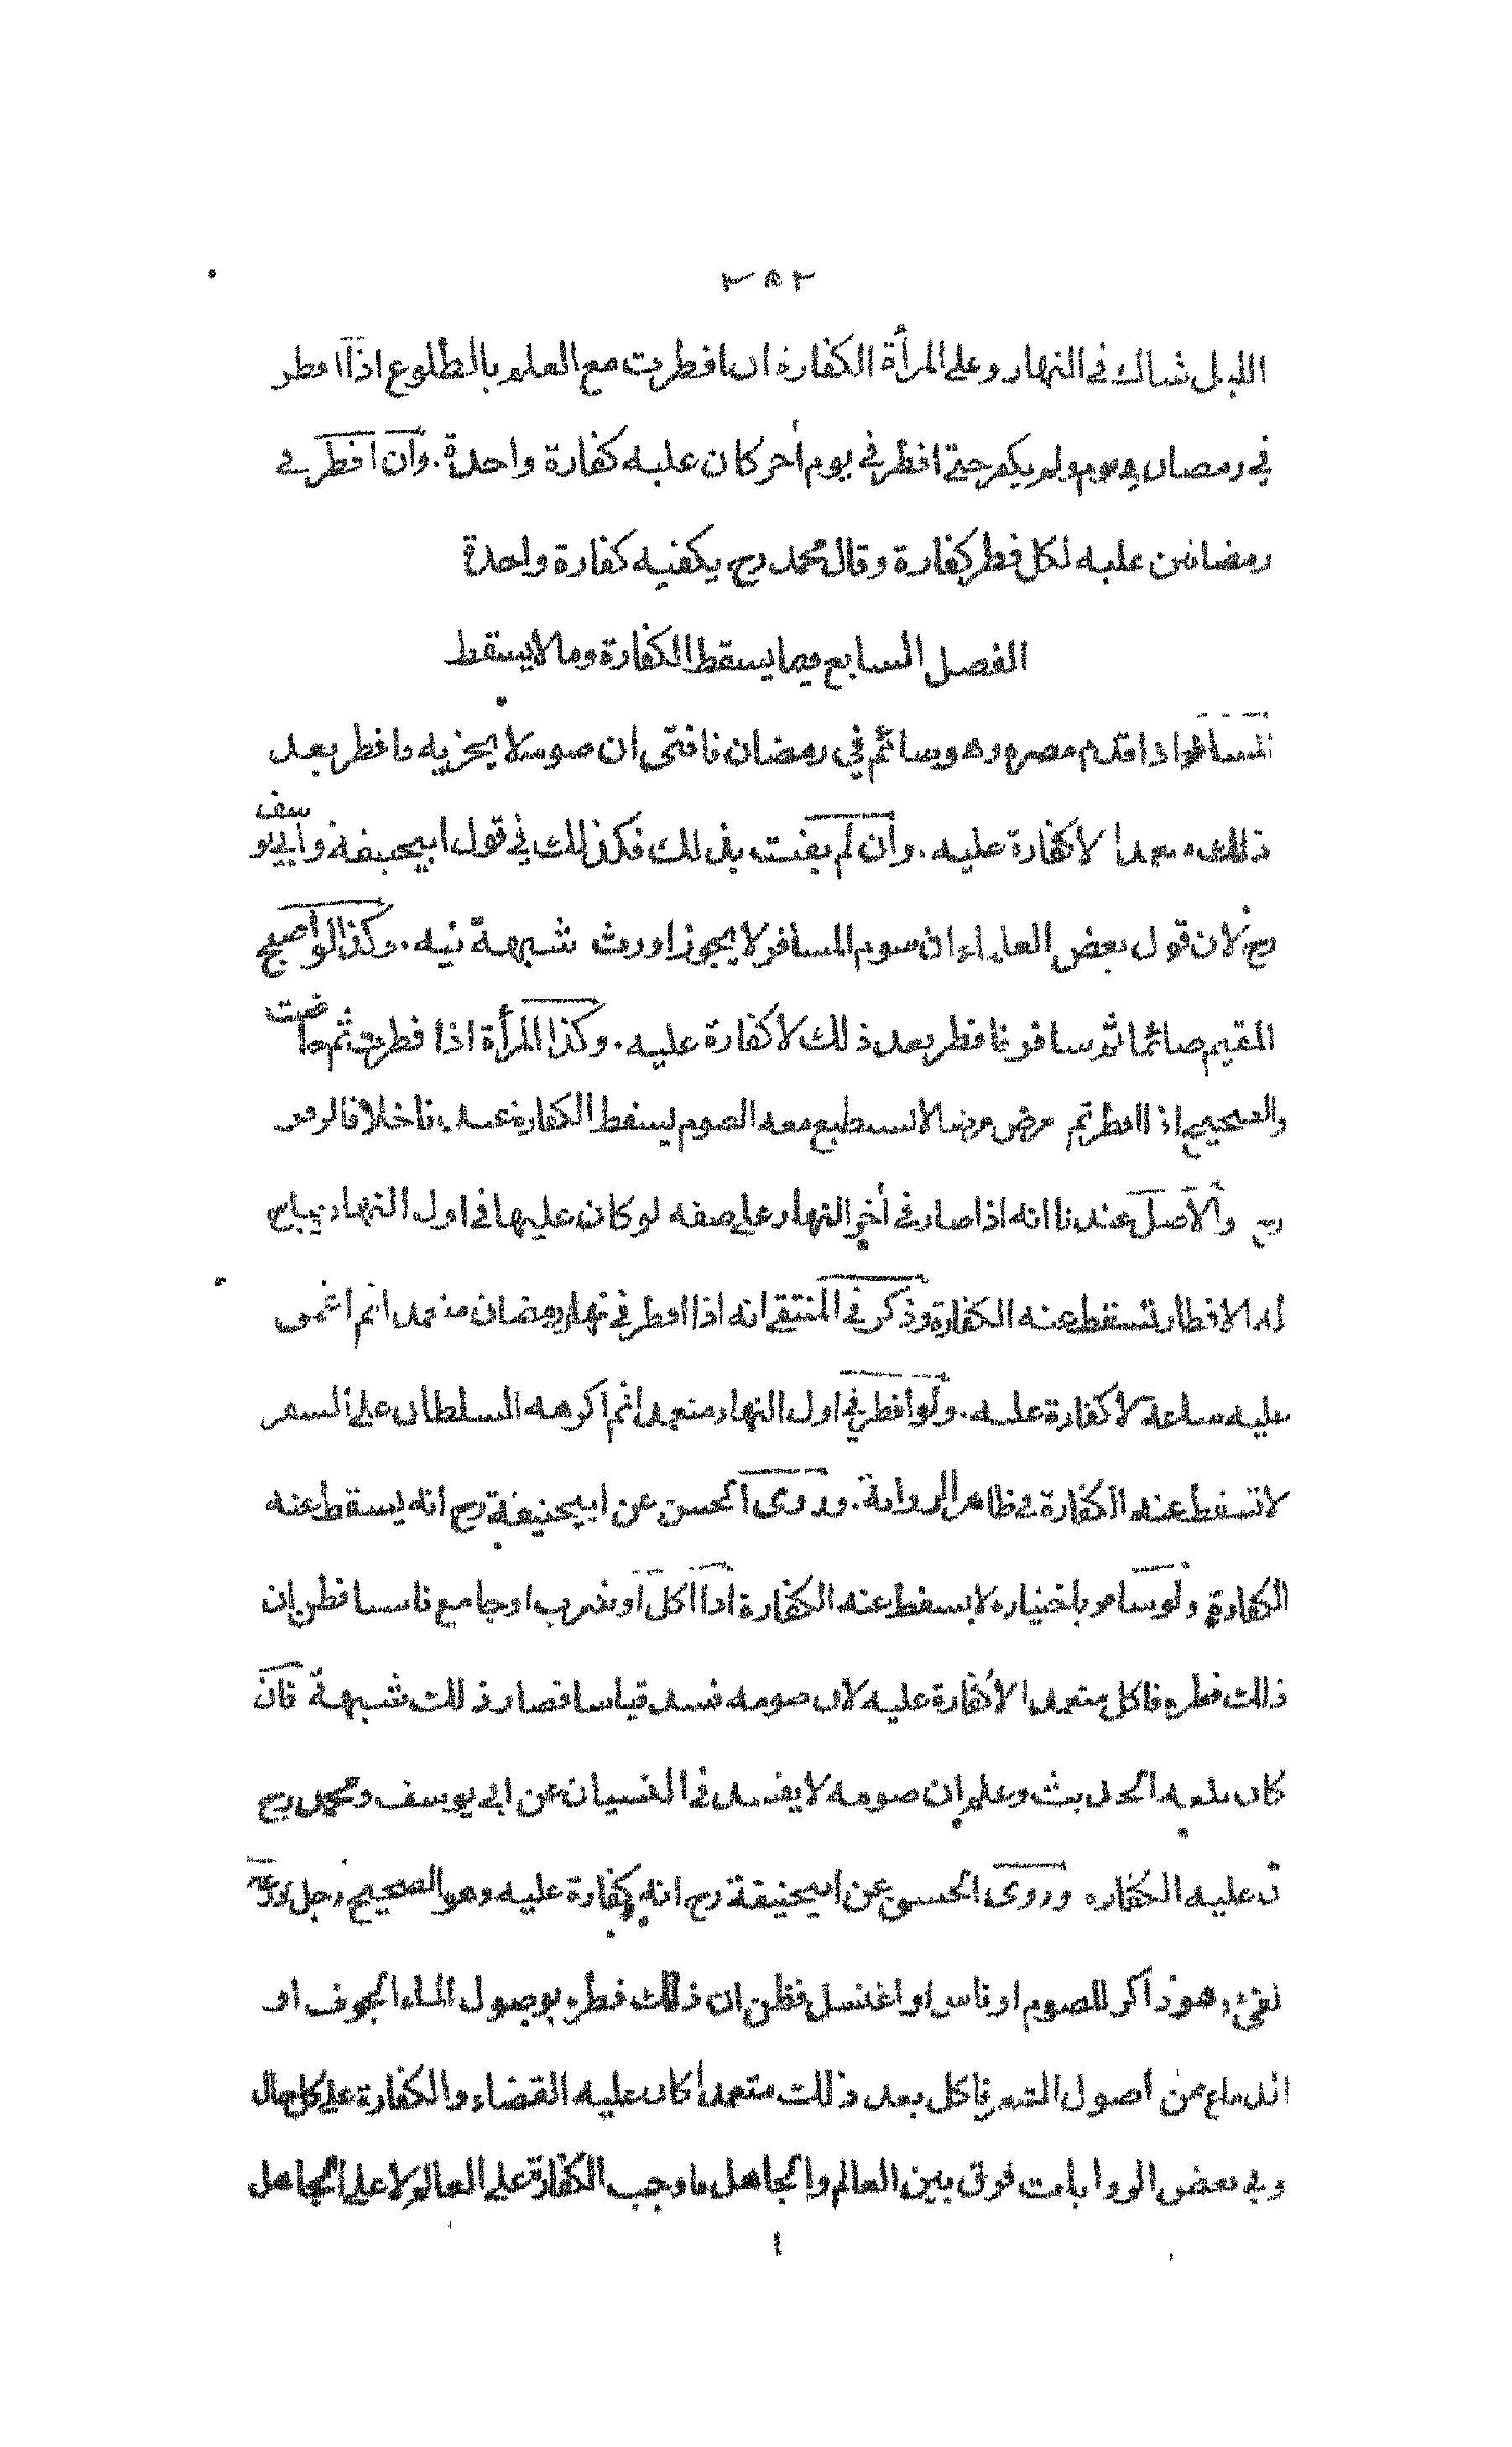 ٢٥٢
الليل شاك في النهار وعلى المرأة الكفارة ان افطرت مع العلم بالطلوع اذا افطر
في رمضان في يوم ولم يكفر حتى افطر في يوم أخر كان عليه كفارة واحدة . وان افطر في
رمضانين عليه لكل فطر كفارة وقال محمد رح يكفيه كفارة واحدة
الفصل السابع فيما يسقط الكفارة وما لا يسقط
المسافر اذا قدم مصره وهو صائم في رمضان فافتى ان صومه لا يجزيه فافطر بعد
ذلك متعمدا لا كفارة عليه . وان لم يفت بذلك فكذلك في قول ابيحنيفة وابي يوسف
رح لان قول بعض العلماء ان صوم المسافر لا يجوز اورث شبهة فيه . وكذا لو اصبح
المقيم صائما ثم سافر فافطر بعد ذلك لا كفارة عليه . وكذا المرأة اذا افطرت ثم حاضت
والصحيح اذا افطر ثم مرض مرضا لا يستطيع معه الصوم يسقط الكفارة عندنا خلافا لزفر
رح والاصل عندنا انه اذا صار في أخر النهار على صفه لو كان عليها في اول النهار يباح
له الافطار تسقط عنه الكفارة وذكر في المنتقى انه اذا افطر في نهار رمضان متعمدا ثم اغمى
عليه ساعة لا كفارة عليه . ولو افطر في اول النهار متعمدا ثم اكرهه السلطان على السفر
لا تسقط عنه الكفارة في ظاهر الرواية . وروى الحسن عن ابيحنيفة رح انه يسقط عنه
الكفارة ولو سافر باختياره لا يسقط عنه الكفارة اذا اكل او شرب او جامع ناسيا فظن ان
ذلك فطره فاكل متعمدا لا كفارة عليه لان صومه فسد قياسا فصار ذلك شبهة فان
كان بلغه الحديث وعلم ان صومه لا يفسد في النسيان عن ابي يوسف ومحمد رح
ان عليه الكفاره وروى الحسن عن ابيحنيفة رح انه لا كفارة عليه وهو الصحيح رجل ذرعه
القئ وهو ذاكر للصوم او قاس او اغتسل فظن ان ذلك فطره بوصول الماء الجوف او
الدماغ من اصول الشعر فاكل بعد ذلك متعمدا كان عليه القضاء والكفارة على كل حال
وفي بعض الروايات فرق بين العالم والجاهل فاوجب الكفارة على العالم لا على الجاهل